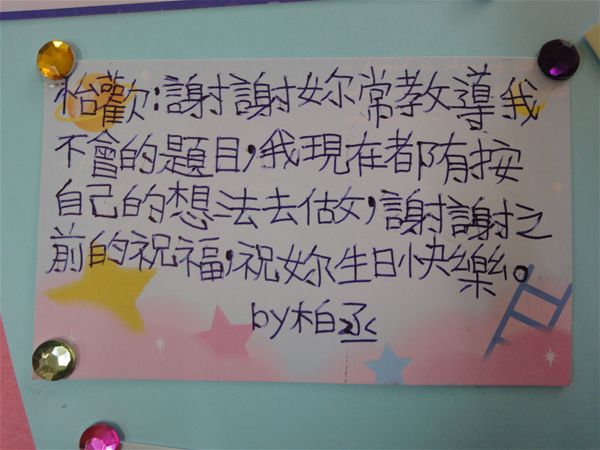 怡歡:謝謝妳常教導我
不會的題目,我現在都有按
自己的想法去做,謝謝之
前的祝福,祝妳生日快樂。
by柏丞